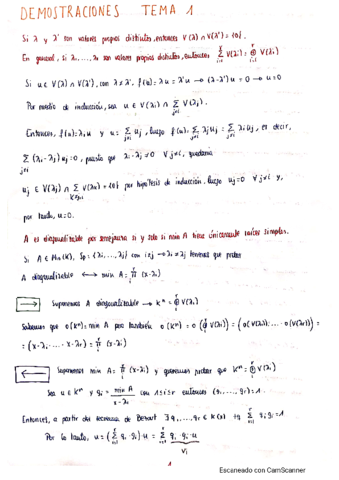 DEMOSTRACIONES TEMA 1
Si λ y λ' son valores propios distintos, entonces V(λ) ∩ V(λ') = {0}.
En general, si λ₁, ..., λᵣ son valores propios distintos, entonces Σ V(λᵢ) = ⊕ V(λᵢ)
Si u ∈ V(λ) ∩ V(λ'), con λ ≠ λ', f(u) = λu = λ'u → (λ-λ')u = 0 → u = 0
Por medio de inducción, sea u ∈ V(λᵢ) ∩ Σ V(λⱼ).
Entonces, f(u) = λᵢu y u = Σ uⱼ, luego f(u) = Σ λⱼuⱼ = Σ λᵢuⱼ, es decir,
Σ (λᵢ-λⱼ)uⱼ = 0, puesto que λᵢ-λⱼ ≠ 0 ∀ j<i, quedaría
uⱼ ∈ V(λⱼ) ∩ Σ V(λₖ) = {0} por hipótesis de inducción, luego uⱼ = 0 ∀ j<i y,
por tanto, u = 0.
A es diagonalizable por semejanza si y solo si min A tiene únicamente raíces simples.
Si A ∈ Mₙ(K), Sp = {λ₁, ..., λᵣ} con i≠j → λᵢ ≠ λⱼ tenemos que probar
A diagonalizable ↔ min A = π (x-λᵢ)
→ Suponemos A diagonalizable → Kⁿ = ⊕ V(λᵢ)
Sabemos que o(Kⁿ) = min A pero también o(Kⁿ) = o(⊕ V(λᵢ)) = (o(V(λ₁)), ... o(V(λᵣ))) =
= (x-λ₁ · ... · x-λᵣ) = π (x-λᵢ)
← Suponemos min A = π (x-λᵢ) y queremos probar que Kⁿ = ⊕ V(λᵢ)
Sea u ∈ Kⁿ y qᵢ = min A / x-λᵢ con 1≤i≤r entonces (q₁, ..., qᵣ) = 1.
Entonces, a partir del teorema de Bezout ∃ g₁, ..., gᵣ ∈ K(x) tq Σ gᵢ qᵢ = 1
Por lo tanto, u = (Σ qᵢ gᵢ) · u = Σ qᵢ gᵢ u
vᵢ
1
Escaneado con CamScanner